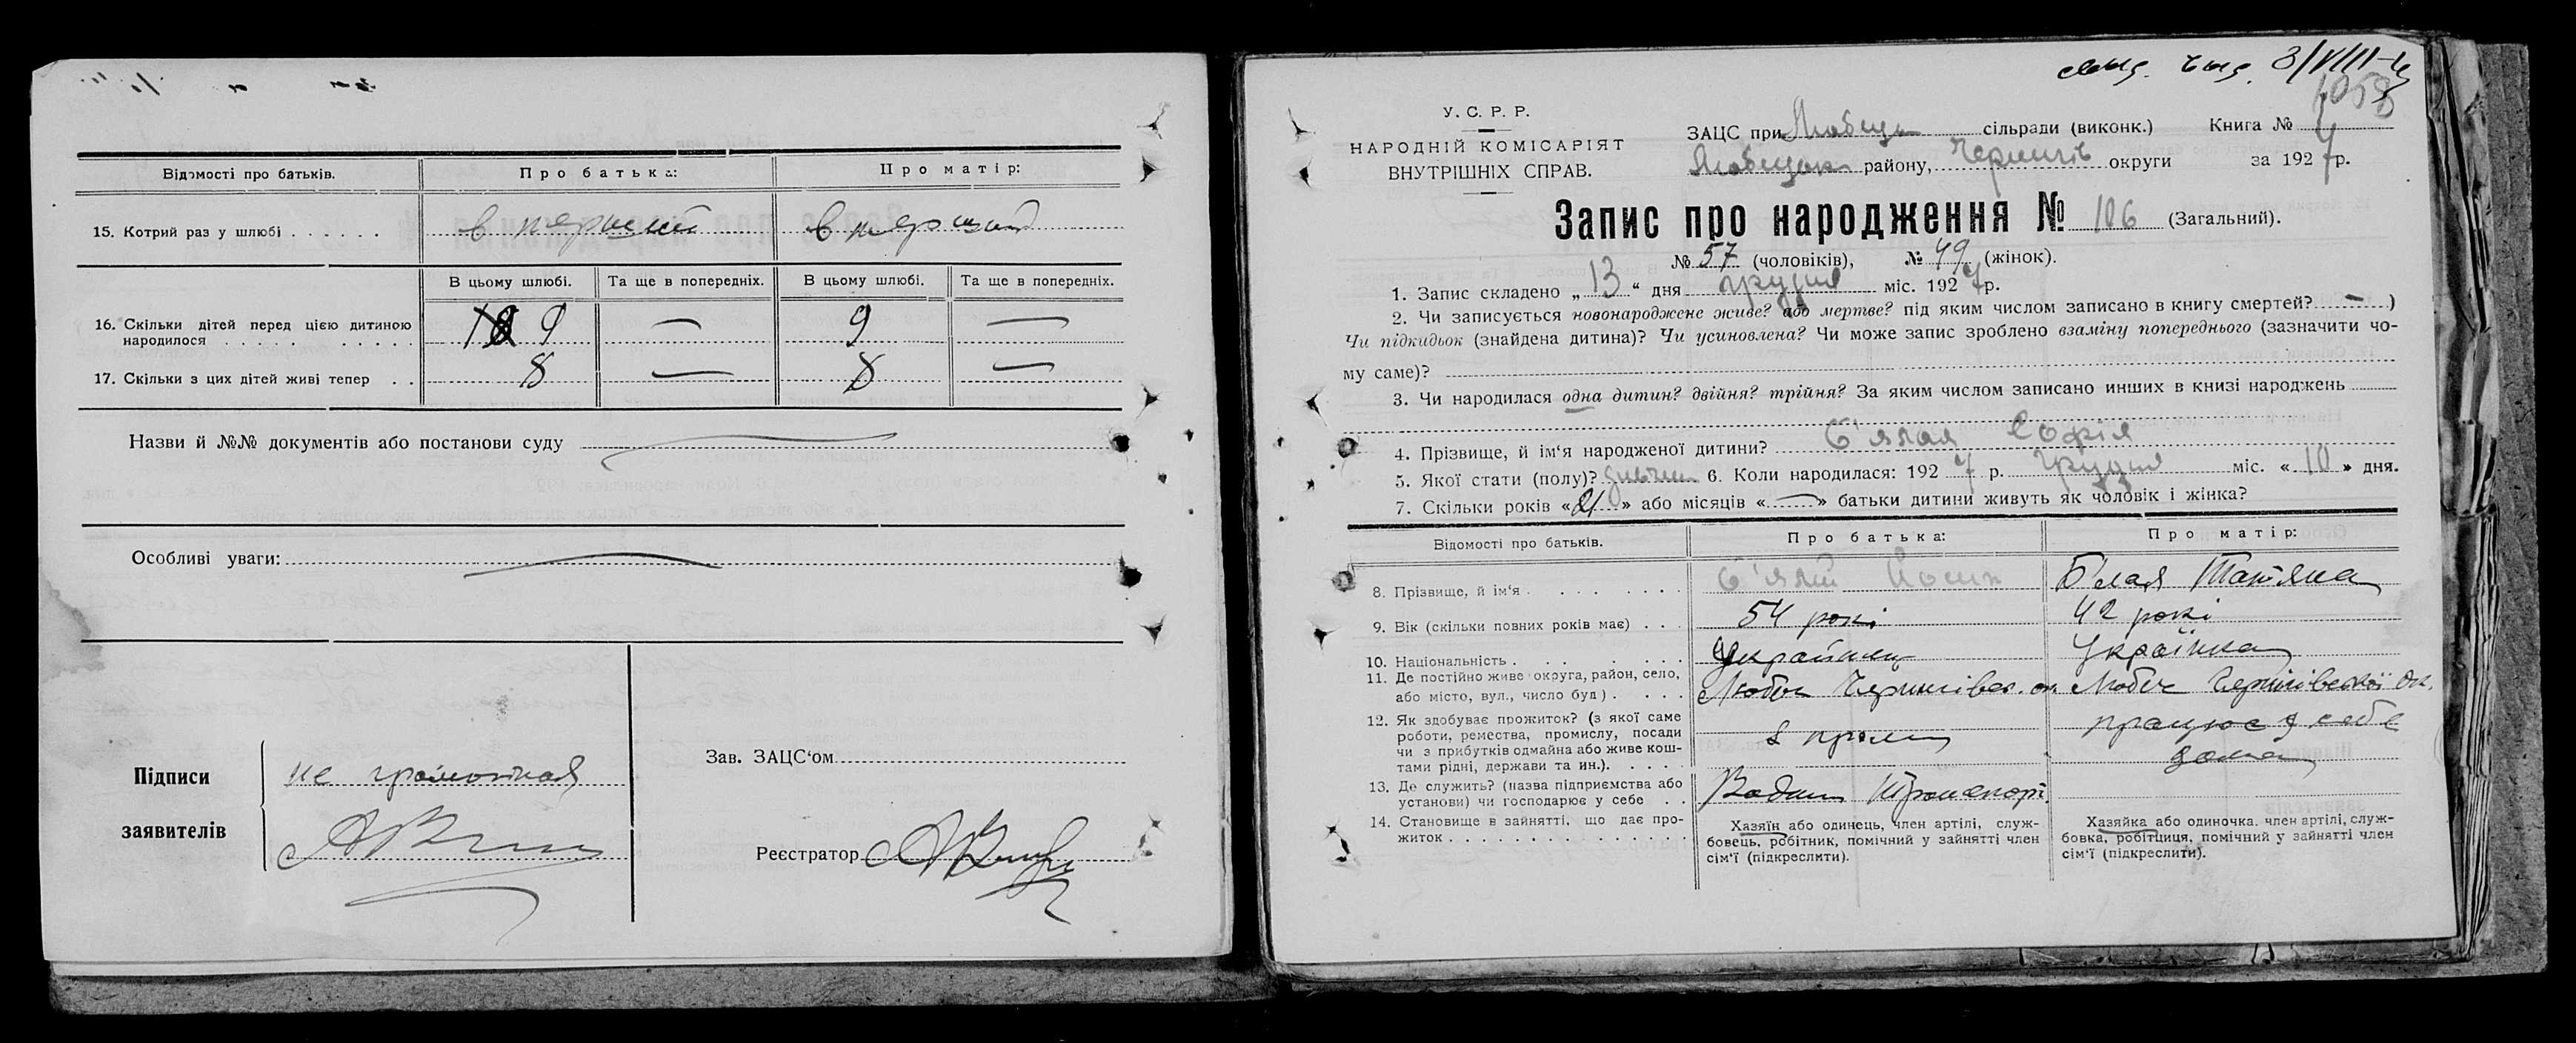 Відомості про батьків. Про батька: Про матір:
15. Котрий раз у шлюбі . . . . . . в перший в перший
В цьому шлюбі. Та ще в попередніх. В цьому шлюбі. Та ще в попередніх.
16. Скільки дітей перед цією дитиною
народилося . . . . . . . . . . 9 — 9 —
17. Скільки з цих дітей живі тепер . . 8 — 8 —
Назви й №№ документів або постанови суду
Особливі уваги:
Підписи
заявителів
не грамотная
Зав. ЗАЦС‘ом
Реєстратор
3/VIII
1058
У. С. Р. Р.
НАРОДНІЙ КОМІСАРІЯТ
ВНУТРІШНІХ СПРАВ.
ЗАЦС при Любецьк сільради (виконк.) Книга №
Любецьк району, Чернигів округи за 1927 р.
Запис про народження № 106 (Загальний).
№ 57 (чоловіків), № 49 (жінок).
1. Запис складено „13“ дня грудня міс. 1927 р.
2. Чи записується новонароджене живе? або мертве? під яким числом записано в книгу смертей? — )
Чи підкидьок (знайдена дитина)? Чи усиновлена? Чи може запис зроблено взаміну попереднього (зазначити чо-
му саме)?
3. Чи народилася одна дитин? двійня? трійня? За яким числом записано инших в книзі народжень
4. Прізвище, й ім‘я народженої дитини? Б'ялая Софія
5. Якої стати (полу)? 6. Коли народилася: 1927 р. грудня міс. « 10 » дня.
7. Скільки років «21» або місяців «—» батьки дитини живуть як чоловік і жінка?
Відомості про батьків. Про батька: Про матір:
8. Прізвище, й ім‘я . . . . . . . Б'ялий Йосип Б'лая Татяна
9. Вік (скільки повних років має) . . . 54 рокі 42 рокі
10. Національність . . . . . . . Українець Українка
11. Де постійно живе округа, район, село,
або місто, вул., число буд) . . . . Любеч Чернигівс. ок. Любеч Чернігівської ок.
12. Як здобуває прожиток? (з якої саме
роботи, ремества, промислу, посади
чи з прибутків одмайна або живе кош-
тами рідні, держави та ин.). . . . працює у себе
дома
13. Де служить? (назва підприємства або
установи) чи господарює у себе . . Транспорт.
14. Становище в зайнятті, що дає про-
житок . . . . . . . . . . . . . . .
Хазяїн або одинець, член артілі, служ-
бовець, робітник, помічний у зайнятті член
сім‘ї (підкреслити).
Хазяйка або одиночка. член артілі, служ-
бовка, робітниця, помічний у зайнятті член
сім‘ї (підкреслити).